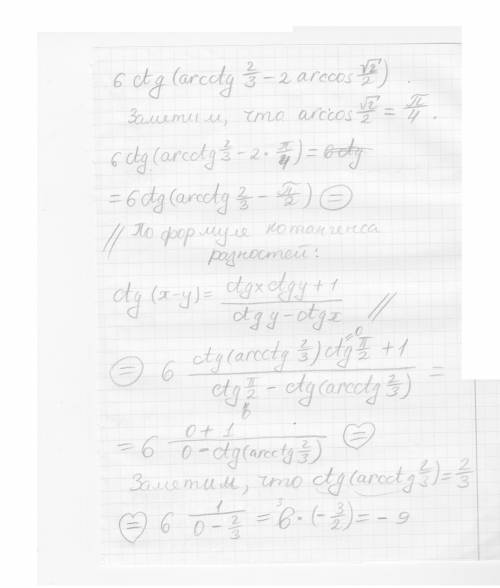 6 ctg (arcctg 2/3 − 2 arccos √2/2)
Заметим, что arccos √2/2 = π/4.
6 ctg (arcctg 2/3 − 2 · π/4) = 6 ctg
= 6 ctg (arcctg 2/3 − π/2) =
// По формуле котангенса
разностей:
ctg (x−y) = (ctgx ctgy + 1)/(ctg y − ctg x) //
= 6 (ctg (arcctg 2/3) ctg π/2 + 1)/(ctg π/2 − ctg (arcctg 2/3)) =
= 6 (0 + 1)/(0 − ctg (arcctg 2/3)) =
Заметим, что ctg (arcctg 2/3) = 2/3
= 6 1/(0 − 2/3) = 6 · (− 3/2) = − 9